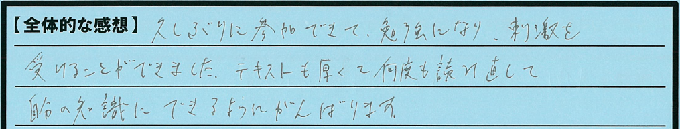 【全体的な感想】久しぶりに参加できて、勉強になり、刺激を
受けることができました。テキストも厚くて何度も読み直して
自分の知識にできるようにがんばります。